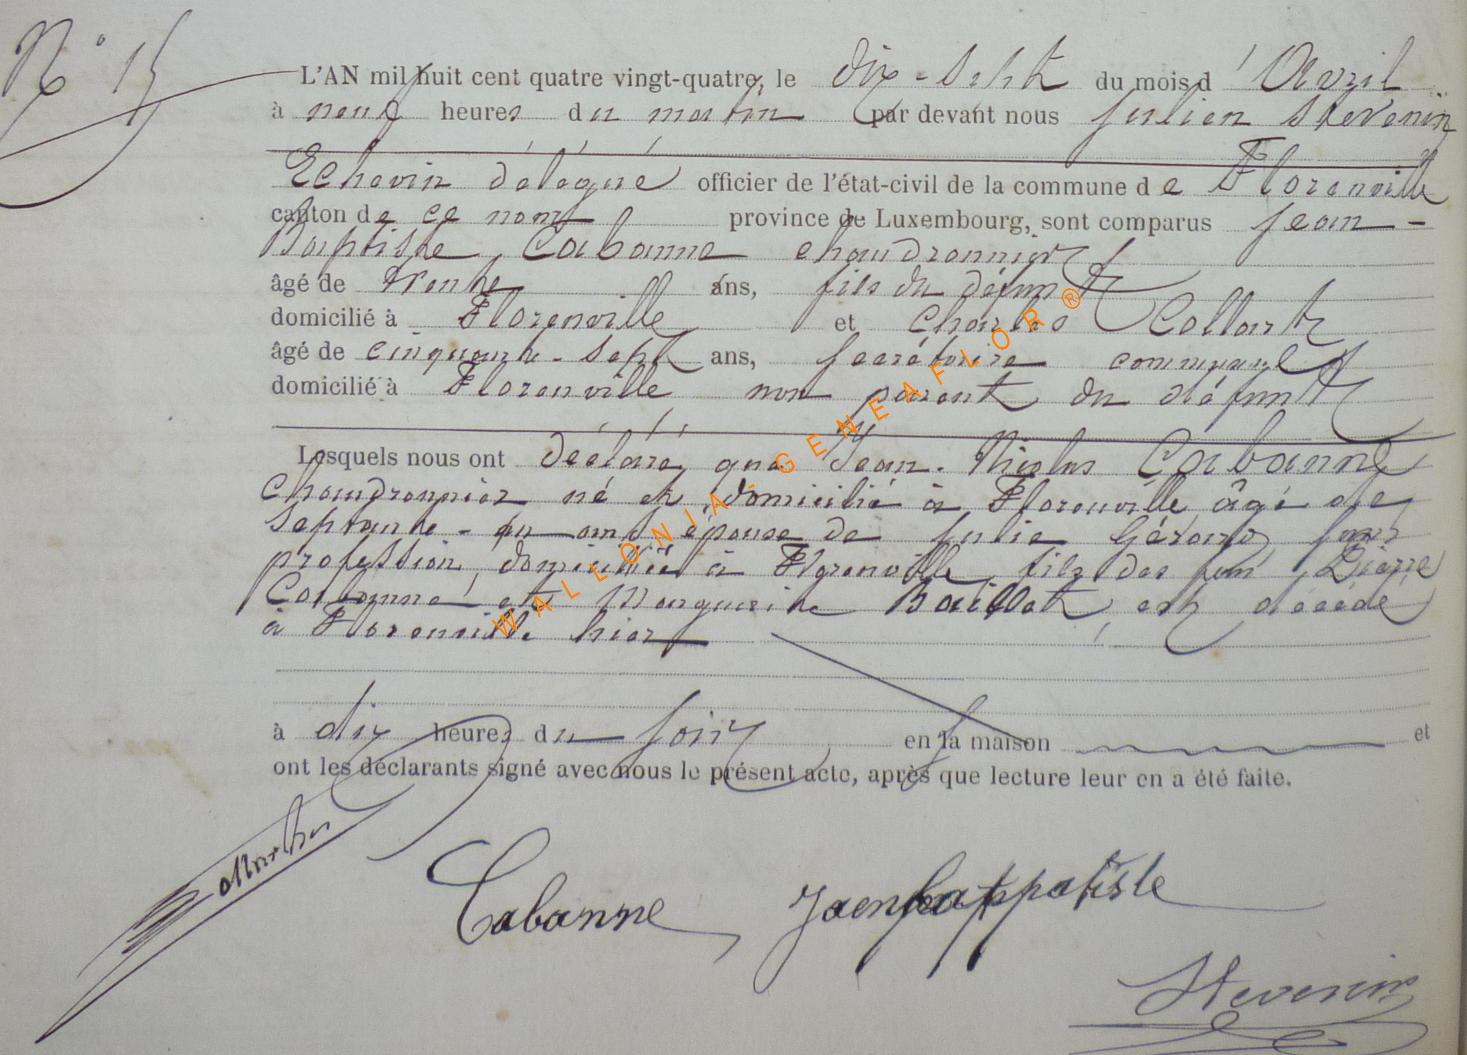 N° 15
L'AN mil huit cent quatre vingt-quatre, le dix-sept du mois d'Avril
à neuf heures du matin par devant nous Julien Stevenin
Echevin délégué officier de l'état-civil de la commune de Florenville
canton de ce nom province de Luxembourg, sont comparus Jean-
Baptiste Cabanne chaudronnier
âgé de trente ans, fils du défunt
domicilié à Florenville et Charles Collart
âgé de cinquante-sept ans, secrétaire communal
domicilié à Florenville non parent du défunt
Lesquels nous ont déclaré que Jean-Nicolas Cabanne
chaudronnier né et domicilié à Florenville âgé de
septante-un ans époux de Julie Gérard sans
profession, domiciliée à Florenville, fils des feu Pierre
Cabanne et Marguerite Baillot, est décédé
à Florenville hier
à dix heures du soir en sa maison et
ont les déclarants signé avec nous le présent acte, après que lecture leur en a été faite.
Cabanne Jaenbappatiste
Stevenin
WALLONIA - GENEAFLOR®